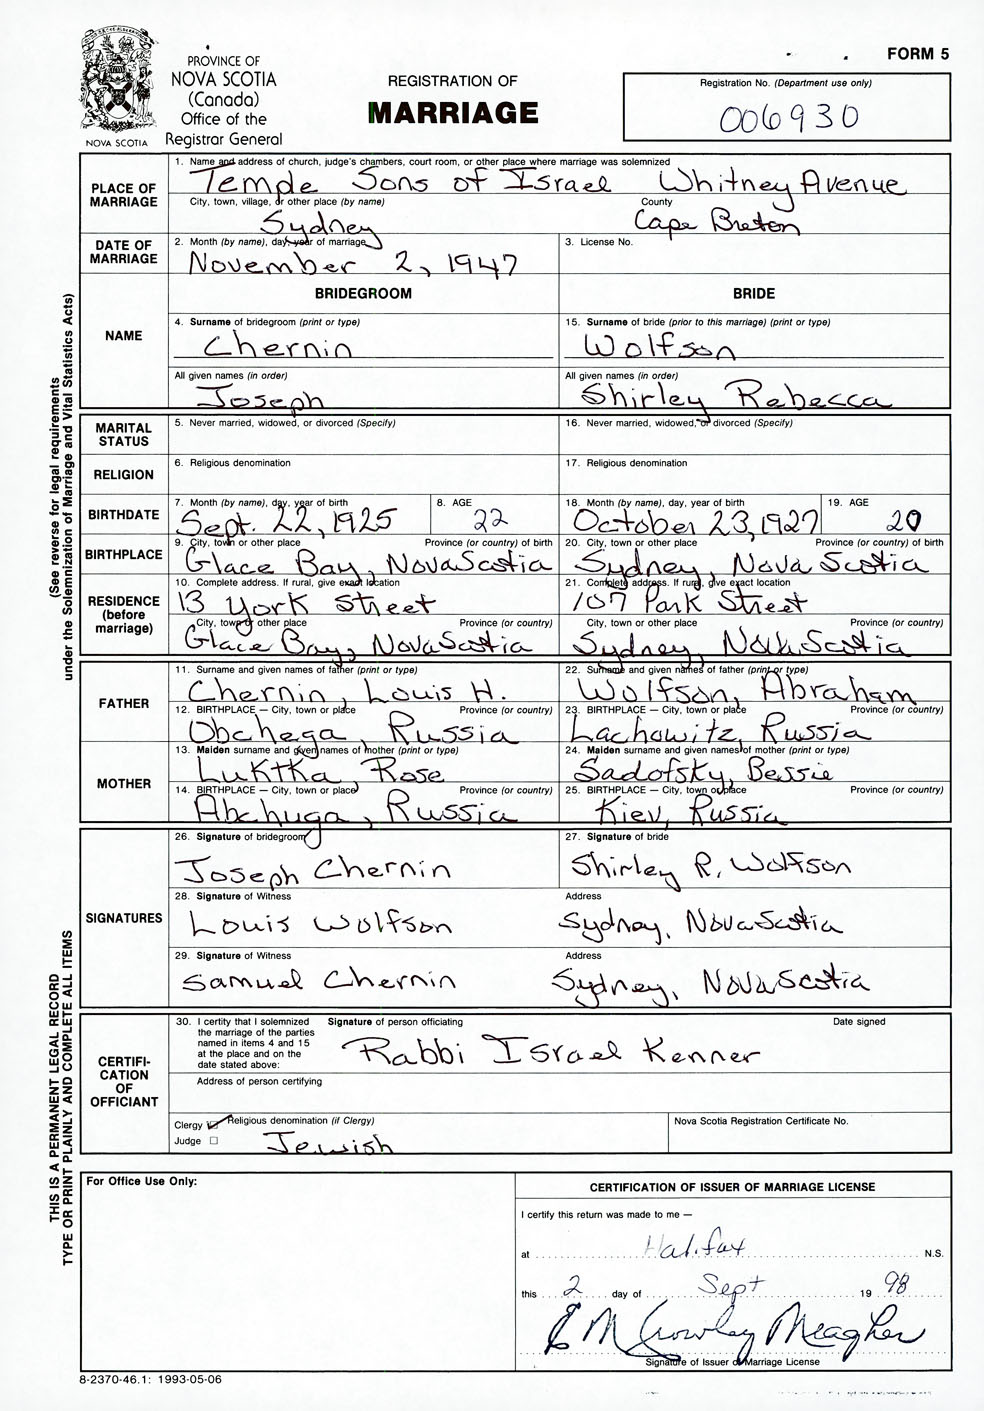 FORM 5
PROVINCE OF
NOVA SCOTIA
(Canada)
Office of the
Registrar General
NOVA SCOTIA
REGISTRATION OF
MARRIAGE
Registration No. (Department use only)
006930
(See reverse for legal requirements
under the Solemnization of Marriage and Vital Statistics Acts)
THIS IS A PERMANENT LEGAL RECORD
TYPE OR PRINT PLAINLY AND COMPLETE ALL ITEMS
PLACE OF
MARRIAGE
1. Name and address of church, judge's chambers, court room, or other place where marriage was solemnized
Temple Sons of Israel Whitney Avenue
City, town, village, or other place (by name) County
Sydney Cape Breton
DATE OF
MARRIAGE
2. Month (by name), day, year of marriage
November 2, 1947
3. License No.
NAME
BRIDEGROOM BRIDE
4. Surname of bridegroom (print or type) 15. Surname of bride (prior to this marriage) (print or type)
Chernin Wolfson
All given names (in order) All given names (in order)
Joseph Shirley Rebecca
MARITAL
STATUS
5. Never married, widowed, or divorced (Specify) 16. Never married, widowed, or divorced (Specify)
RELIGION
6. Religious denomination 17. Religious denomination
BIRTHDATE
7. Month (by name), day, year of birth 8. AGE 18. Month (by name), day, year of birth 19. AGE
Sept. 22, 1925 22 October 23, 1927 20
BIRTHPLACE
9. City, town or other place Province (or country) of birth 20. City, town or other place Province (or country) of birth
Glace Bay, Nova Scotia Sydney, Nova Scotia
RESIDENCE
(before
marriage)
10. Complete address. If rural, give exact location 21. Complete address. If rural, give exact location
13 York Street 107 Park Street
City, town or other place Province (or country) City, town or other place Province (or country)
Glace Bay, Nova Scotia Sydney, Nova Scotia
FATHER
11. Surname and given names of father (print or type) 22. Surname and given names of father (print or type)
Chernin, Louis H. Wolfson, Abraham
12. BIRTHPLACE — City, town or place Province (or country) 23. BIRTHPLACE — City, town or place Province (or country)
Obchega, Russia Lachowitz, Russia
MOTHER
13. Maiden surname and given names of mother (print or type) 24. Maiden surname and given names of mother (print or type)
Luktka, Rose Sadofsky, Bessie
14. BIRTHPLACE — City, town or place Province (or country) 25. BIRTHPLACE — City, town or place Province (or country)
Abchuga, Russia Kiev, Russia
SIGNATURES
26. Signature of bridegroom 27. Signature of bride
Joseph Chernin Shirley R. Wolfson
28. Signature of Witness Address
Louis Wolfson Sydney, Nova Scotia
29. Signature of Witness Address
Samuel Chernin Sydney, Nova Scotia
CERTIFI-
CATION
OF
OFFICIANT
30. I certify that I solemnized
the marriage of the parties
named in items 4 and 15
at the place and on the
date stated above:
Signature of person officiating Date signed
Rabbi Israel Kenner
Address of person certifying
Clergy Religious denomination (if Clergy)
Judge
Jewish
Nova Scotia Registration Certificate No.
For Office Use Only:
CERTIFICATION OF ISSUER OF MARRIAGE LICENSE
I certify this return was made to me —
at Halifax N.S.
this 2 day of Sept 19 98
E M Crowley Meagher
Signature of Issuer of Marriage License
8-2370-46.1: 1993-05-06